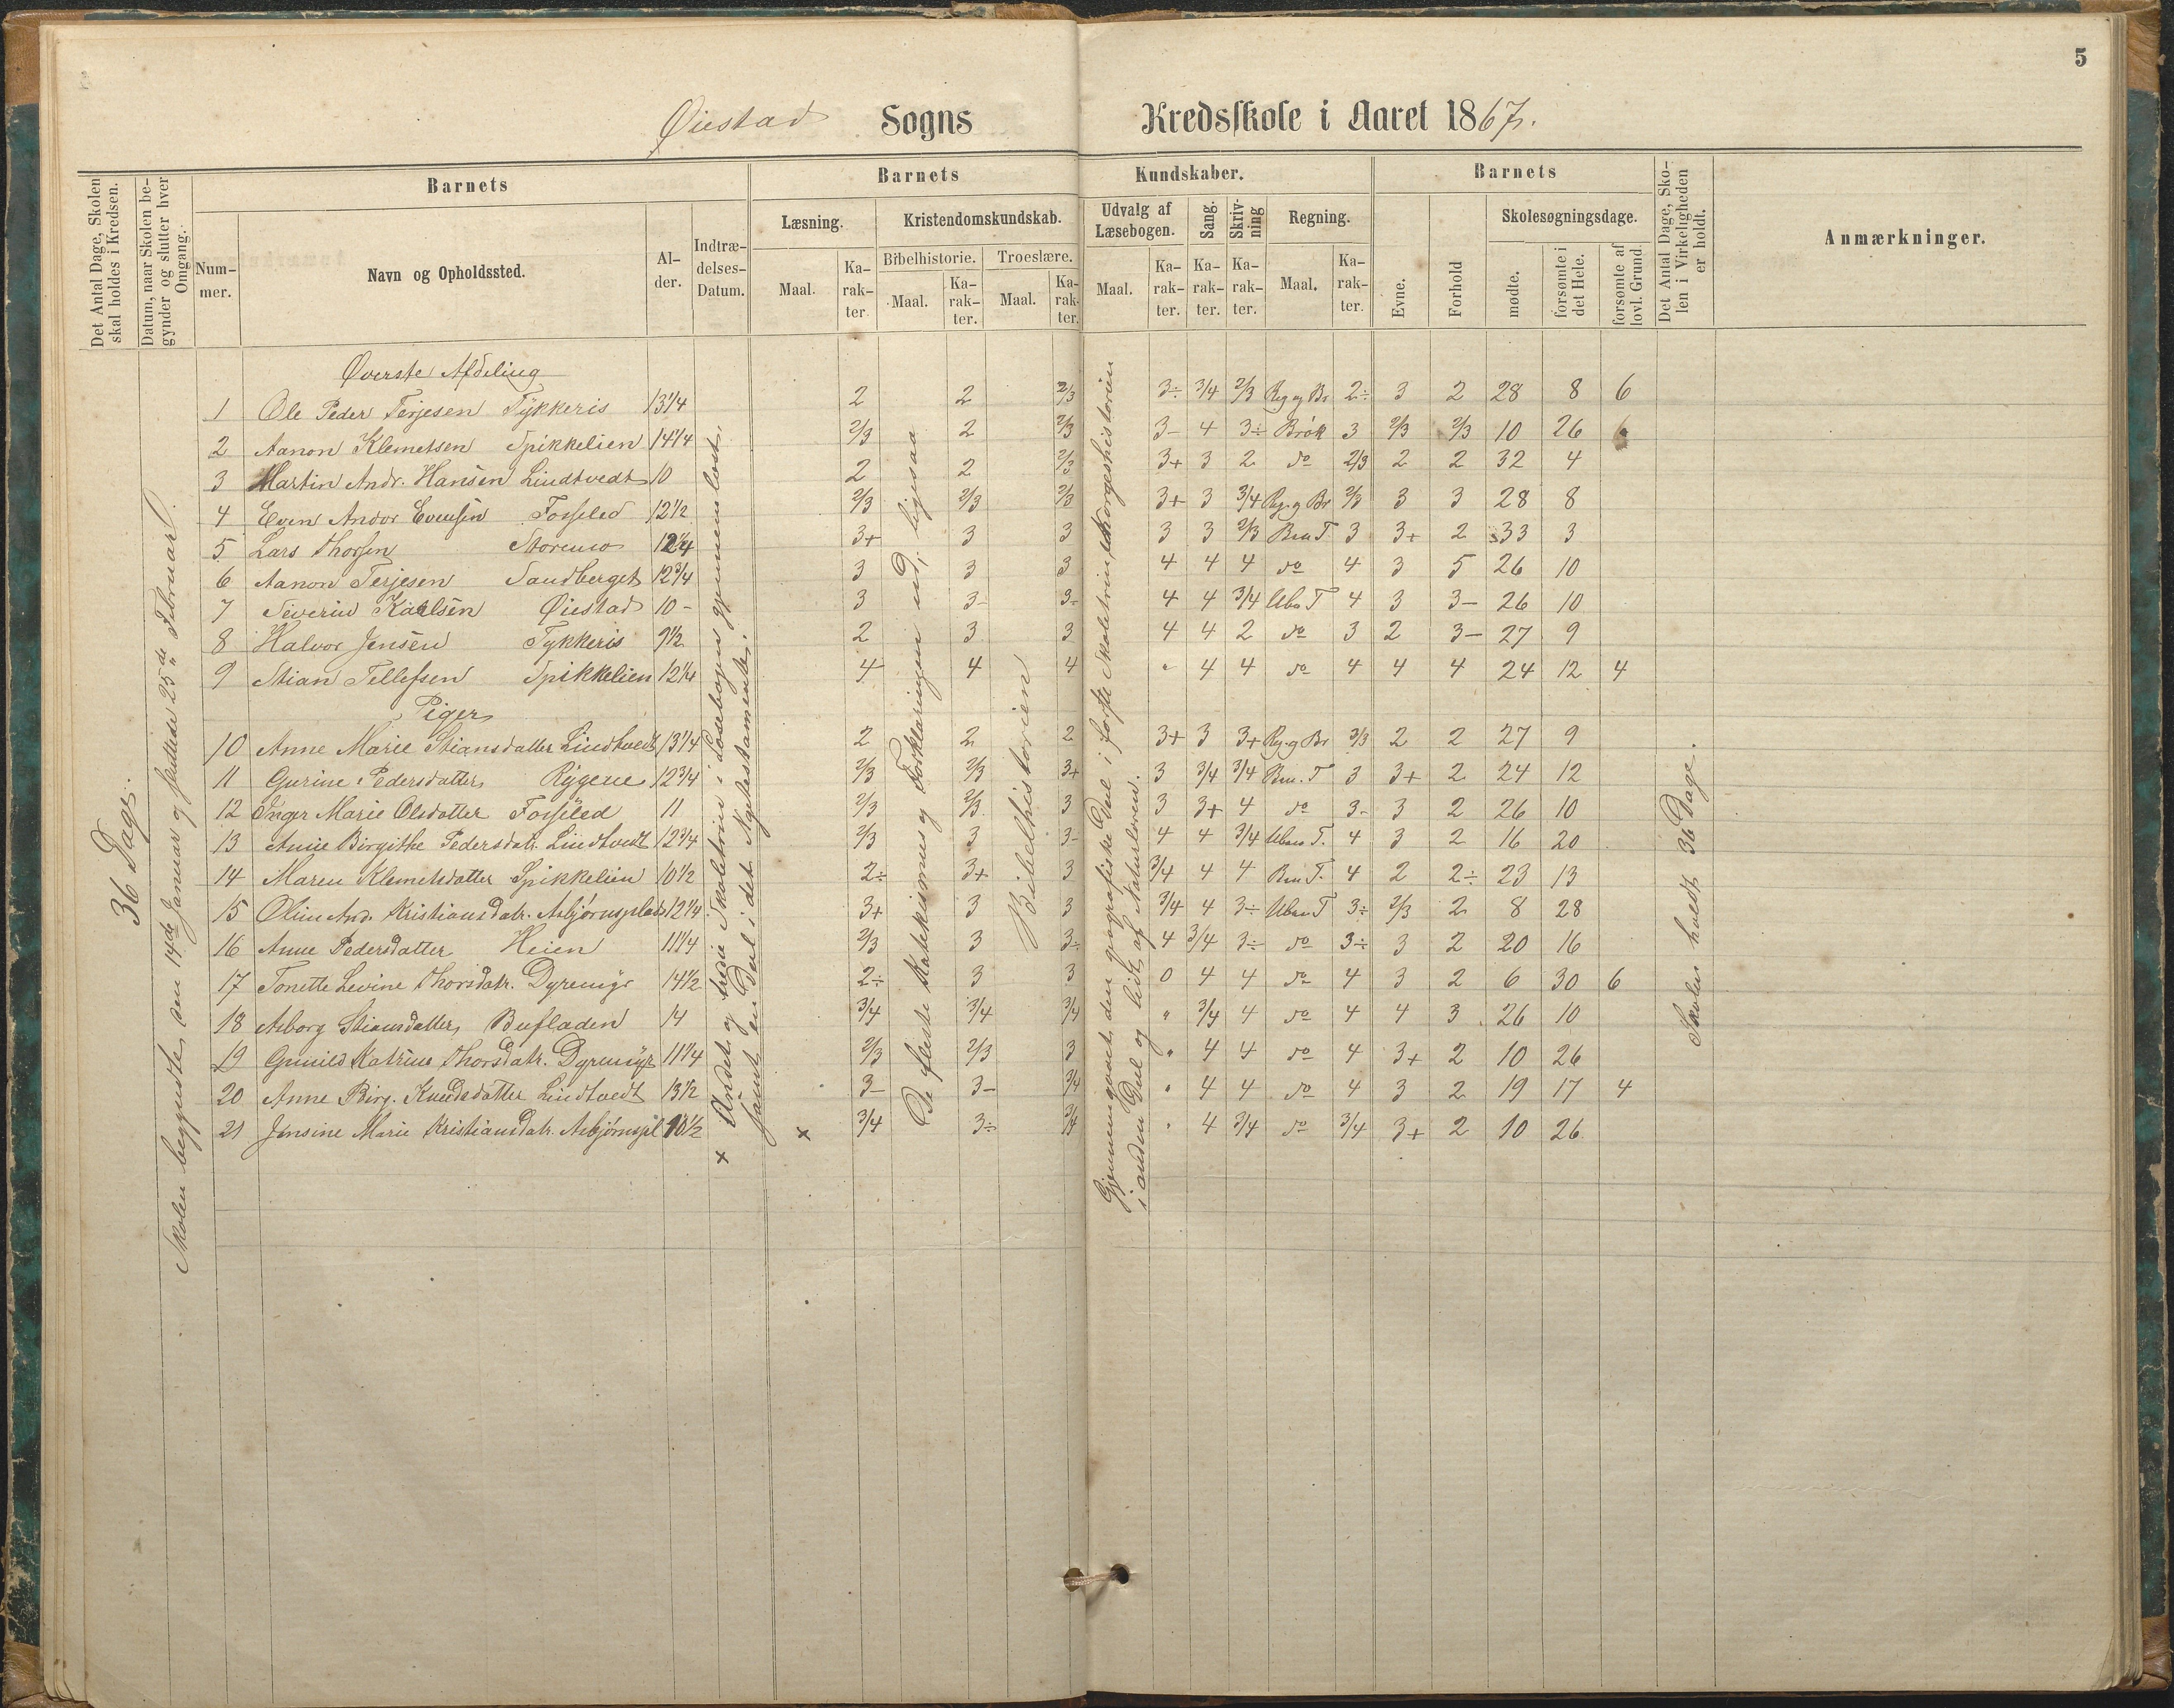 5
Øiestad Sogns Kredsskole i Aaret 1867.
Det Antal Dage, Skolen skal holdes i Kredsen.
Datum, naar Skolen begynder og slutter hver Omgang.
Barnets
Num-mer.
Navn og Opholdssted.
Al-der.
Indtræ-delses-Datum.
Barnets Kundskaber.
Læsning.
Maal.
Ka-rak-ter
Kristendomskundskab.
Bibelhistorie.
Maal.
Ka-rak-ter.
Troeslære.
Maal.
Ka-rak-ter.
Udvalg af Læsebogen.
Maal.
Ka-rak-ter.
Sang.
Ka-rak-ter.
Skriv-ning
Ka-rak-ter.
Regning.
Maal.
Ka-rak-ter.
Barnets
Evne.
Forhold
Skolesøgningsdage.
mødte.
forsømte i det Hele.
forsømte af lovl. Grund.
Det Antal Dage, Sko-len i Virkeligheden er holdt.
Anmærkninger.
36 Dage.
Skolen begyndte den 14de Januar og sluttede 25de Februar.
Øverste Afdeling
1 Ole Peder Terjesen Tykkeris 13 1/4 2 2 2/3 3÷ 3/4 2/3 Reg og Br 2÷ 3 2 28 8 6
2 Aanon Klemetsen Spikkelien 14 1/4 2/3 2 2/3 3- 4 3÷ Brök 3 2/3 2/3 10 26 6
3 Martin Andr. Hansen Lindtvedt 10 2 2 2/3 3+ 3 2 do 2/3 2 2 32 4
4 Even Andor Evensen Fosseled 12 1/2 2/3 2/3 2/3 3+ 3 3/4 Reg. og Br 2/3 3 3 28 8
5 Lars Thorsen Storemo 12 1/4 3+ 3 3 3 3 2/3 Ben T 3 3+ 2 33 3
6 Aanon Terjesen Sandberget 12 3/4 3 3 3 4 4 4 do 4 3 5 26 10
7 Severin Karlsen Øiestad 10- 3 3- 3- 4 4 3/4 Uben T 4 3 3- 26 10
8 Halvor Jensen Tykkeris 9 1/2 2 3 3 4 4 2 do 3 2 3- 27 9
9 Stian Tellefsen Spikkelien 12 1/4 4 4 4 " 4 4 do 4 4 4 24 12 4
Piger
10 Anne Marie Stiansdatter Lindtvedt 13 1/4 2 2 2 3+ 3 3+ Reg. og Br 2/3 2 2 27 9
11 Gurine Pedersdatter Rygene 12 3/4 2/3 2/3 3+ 3 3/4 3/4 Ben. T 3 3+ 2 24 12
12 Inger Marie Olsdatter Fosseled 11 2/3 2/3 3 3 3+ 4 do 3- 3 2 26 10
13 Anne Birgithe Pedersdatr. Lindtvedt 12 3/4 2/3 3 3- 4 4 3/4 Uben T. 4 3 2 16 20
14 Maren Klemetsdatter Spikkelien 10 1/2 2÷ 3+ 3 3/4 4 4 Ben T. 4 2 2÷ 23 13
15 Oline And. Kristiansdatr. Asbjørnsplads 12 1/4 3+ 3 3 3/4 4 3÷ Uben T 3÷ 2/3 2 8 28
16 Anne Pedersdatter Heien 11 1/4 2/3 3 3÷ 4 3/4 3÷ do 3÷ 3 2 20 16
17 Tonette Levine Thorsdatr. Dyremyr 14 1/2 2÷ 3 3 0 4 4 do 4 3 2 6 30 6
18 Asborg Stiansdatter Bufladen 14 3/4 3/4 3/4 " 3/4 4 do 4 4 3 26 10
19 Gunild Katrine Thorsdatr. Dyremyr 11 1/4 2/3 2/3 3 " 4 4 do 4 3+ 2 10 26
20 Anne Birg. Knudsdatter Lindtvedt 13 1/2 3- 3- 3/4 " 4 4 do 4 3 2 19 17 4
21 Jensine Marie Kristiansdatr. Asbjørnspl 10 1/2 3/4 3÷ 3/4 " 4 3/4 do 3/4 3+ 2 10 26
x Andet og tredie Skoletrin i Læsebogen gjennemlæst,
samt en Deel i det Nytestamente.
x
De fleste Katekismus og Forklaringen ud, ligesaa
Bibelhistorien
Gjennemgaaet den geografiske Deel i første Skoletrin, Norgeshistorien
i anden Deel og lidt af Naturlæren.
Skolen holdt 36 Dage.